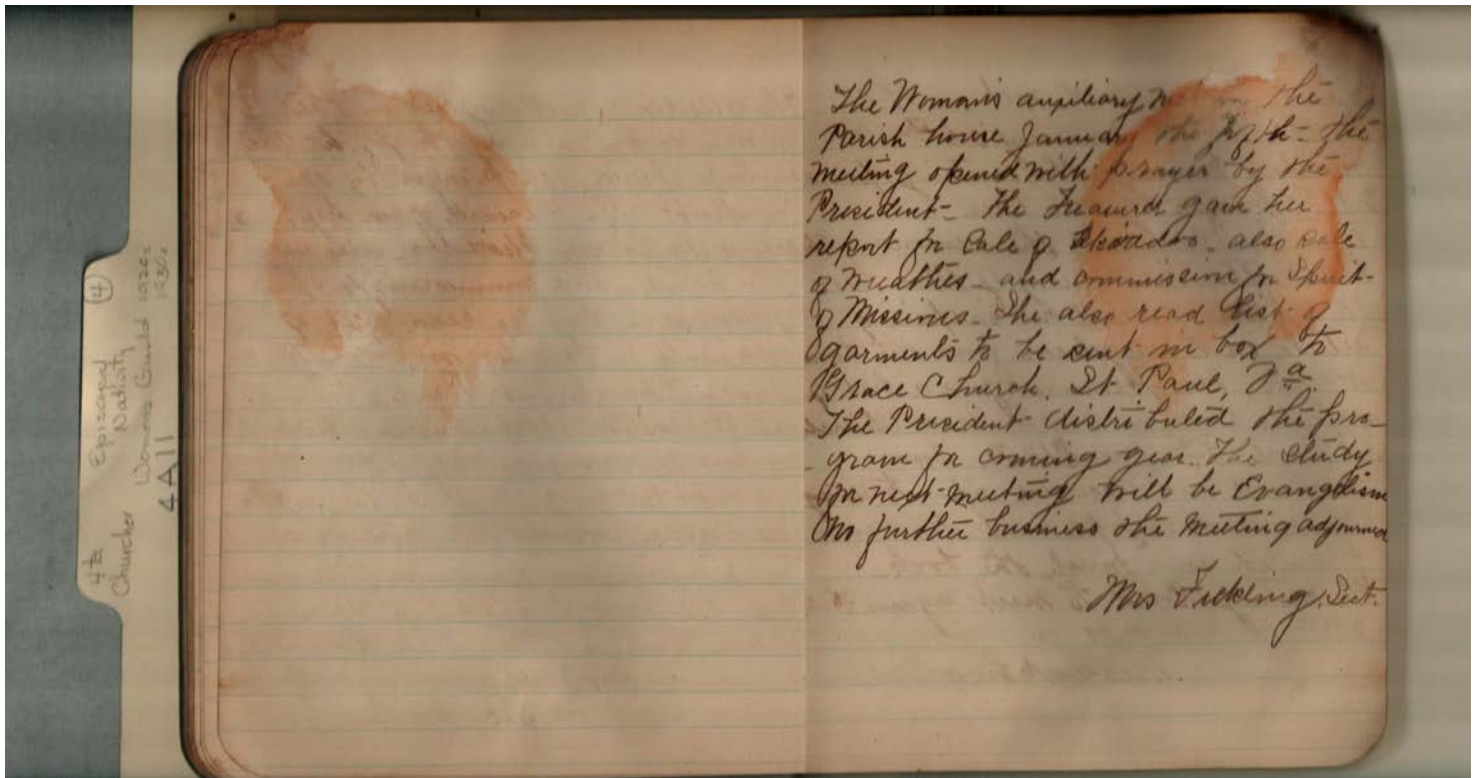 4a
Churches Episcopal
Nativity
Womans Guild 1920s
1930s
4A11
4
The Woman's auxiliary met in the
Parish house January the fifth - the
meeting opened with prayer by the
President - The Treasurer gave her
report for Sale of also sale
of Wreathes - and commission for Spirit -
of Missions. She also read list of
garments to be sent in box to
Grace Church. St Paul,
The President distributed the pro-
- gram for coming year. The study
for next meeting will be Evangelism
No further business the meeting adjourned
Mrs Fickling, Sect.